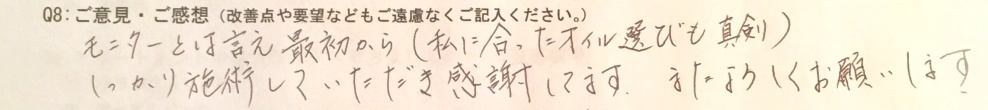 Q8：ご意見・ご感想（改善点や要望などもご遠慮なくご記入ください。）
モニターとは言え 最初から（私に合ったオイル選びも真剣）
しっかり施術していただき感謝してます. またよろしくお願いします